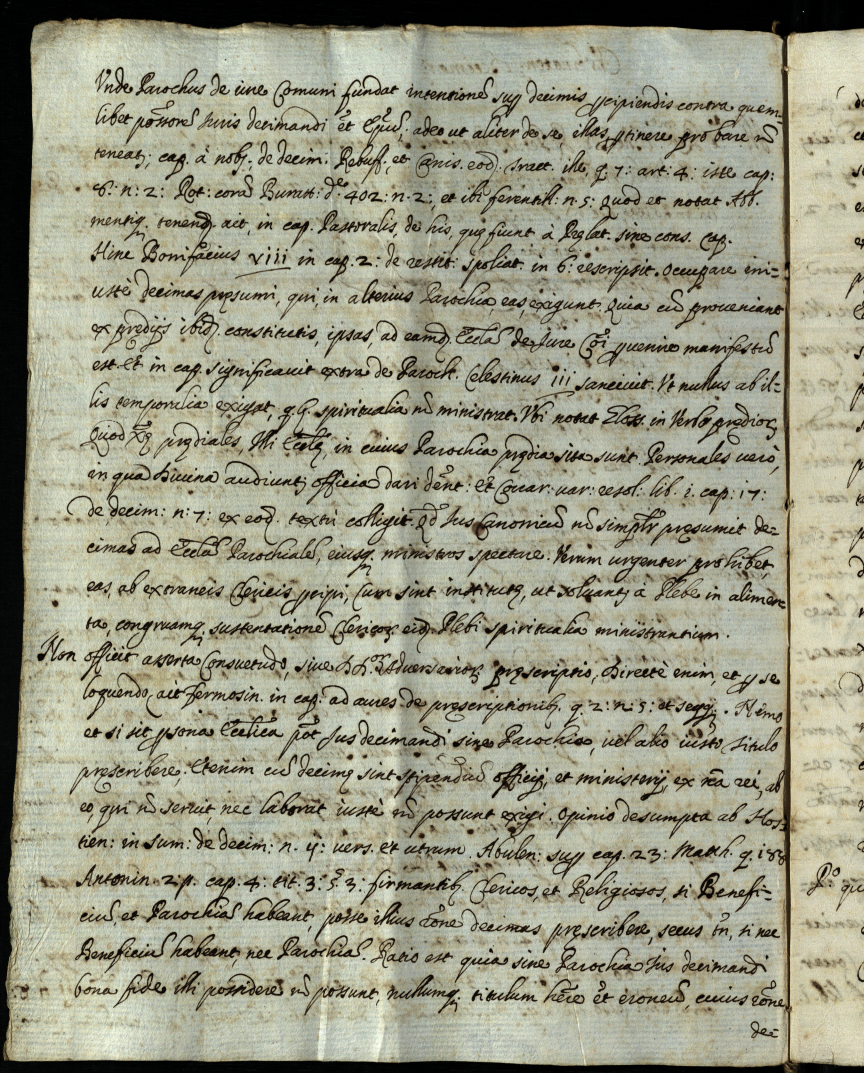 Vnde Parochus de iure Comuni fundat intentionē sup decimis pcipiendis contra quem-
libet possorē Iuris decimandi et adeo ut aliter de se illas ptinere probare nō
teneat; cap. à nob; de decim: Rebuff. et Canis. eod. tract. ille q. 7: art: 4: iste cap:
6: n: 2: Rot: corā Buratt: d. 402: n. 2:, et ibi ferentill: n. 5: quod et notat Abb.
mentiq tenend ait, in cap. Pastoralis, de his, quę fiunt à Pręlat. sine cons. Cap.
Hinc Bonifacius VIII in cap. 2: de restit: spoliat. in 6: rescripsit. Occupare ini-
ustè decimas pręsumi, qui, in alterius Parochia, eas, exigunt. Quia cū proveniant
ex prędijs ibid. constitutis, ipsas, ad eamd. Eccłā de Iure Coi puenire manifestū
est. Et in cap. significauit extra de Paroch. Celestinus III sanciuit. Vt nullus ab il-
lis temporalia exigat, q. spiritualia nō ministrat. Vbi notat Gloss. in Verbo prędior
Quod prędiales, illi Eccłę, in cuius Parochia prędia sita sunt. Personales verò,
in qua Diuina audiunt; officia dari dēnt: Et Couar: uar: resol: lib. i. cap: 17:
de decim: n: 7: ex eod. textu colligit. Qd Ius Canonicū nō simplr pręsumit de-
cimas ad Eccłā Parochialē, eiusq. ministros spectare: Verum urgenter prohibet,
eas, ab extraneis Clericis pcipi, Cum sint institutę, ut soluant; à Plebe in alimen-
ta, congruamq; sustentationē Clericor eid. Plebi spiritualia ministrantium.
Non officit asserta Consuetudo, siue DD. Aduersarior pręscriptio, Directè enim, et p se
loquendo, ait Fermosin. in cap. ad aures de pręscriptionib. q. 2: n: 5: et seqq:. Nemo
et si sit psona Ecclīca pōt Ius decimandi sine Parochia, vel alio iusto titulo
pręscribere, Etenim cū decimę sint stipendiū officij, et ministerij, ex nā rei, ab
eo, qui nō seruit nec laborat iustè nō possunt exigi. Opinio desumpta ab Hos-
tien: in sum: de decim: n. vers. et utrum. Abulen: sup cap. 23: Matth. q. 188
Antonin. 2. p. cap. 4: tit. 3: §. 3: firmantib. Clericos, et Religiosos, si Benefi-
ciū, et Parochiā habeant, posse illius rōne decimas pręscribere, secus tn, si nec
Beneficiū habeant nec Parochiā. Ratio est quia sine Parochia Ius decimandi
bona fide illi possidere nō possunt, nullumq; titulum hēre et eroneū, cuius rōne
de-